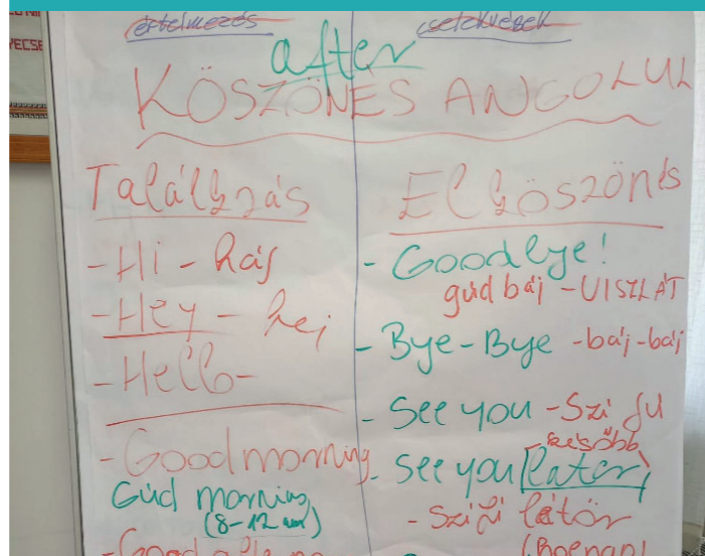 értelmezés
after
KÖSZÖNÉS ANGOLUL
Találkozás
- Hi - háj
- Hey - hej
- Hello -
- Good morning
Gúd morning
(8-12 am)
Elköszönés
- Goodbye!
gúd báj - VISZLÁT
- Bye-Bye - báj-báj
- See you - Szí jú
- később
- See you later,
- Szí jú